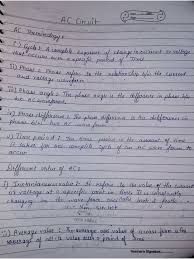 AC Circuit
AC Terminology :-
i) Cycle : A complete sequence of change in current or voltage
that occurs over a specific period of time
ii) Phase : Phase refers to the relationship b/w the current
and voltage waveform
iii) Phase Angle : The phase angle is the difference in phase b/w
two AC waveform
iv) Phase difference : The phase difference is the difference in
phase b/w two AC wave form
v) Time period : The time period is the amount of time
it takes for one complete cycle of an AC wave form to
occur.
Different value of AC :
i) Instantaneous value : It refers to the value of the current
or voltage at a specific point in time. It is constantly
changing as the wave form oscillate
ii) Average value : The average of all value of
average of all its value over a period of time
Teacher's Signature